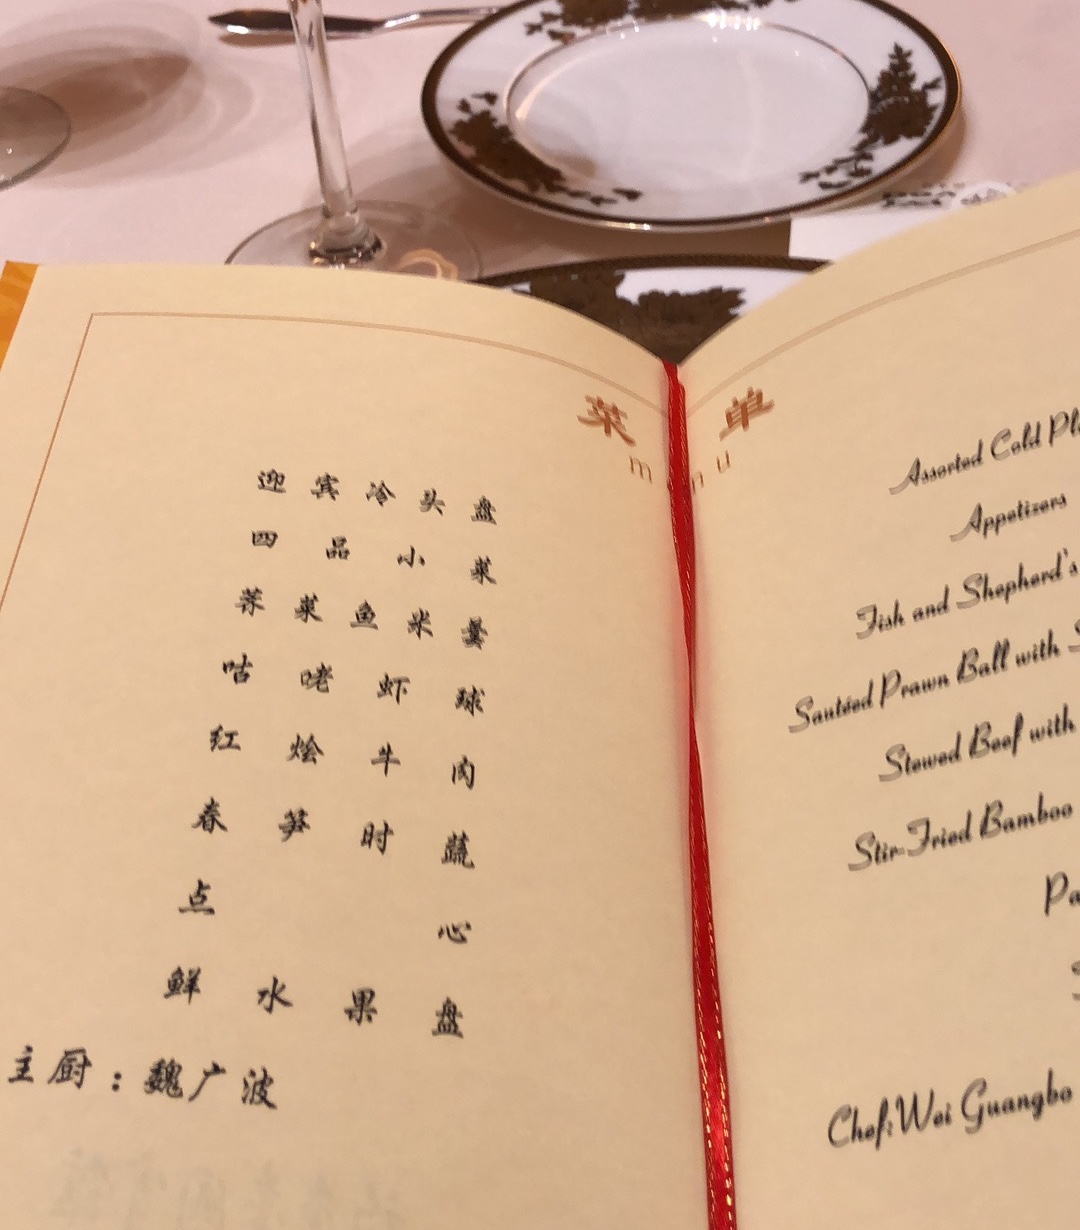 菜单
menu
迎宾冷头盘
四品小菜
荠菜鱼米羹
咕咾虾球
红烩牛肉
春笋时蔬
点心
鲜水果盘
主厨：魏广波
Assorted Cold
Appetizers
Fish and Shepherd's
Sautéed Prawn Ball with
Stewed Beef with
Stir-Fried Bamboo
Chef:Wei Guangbo